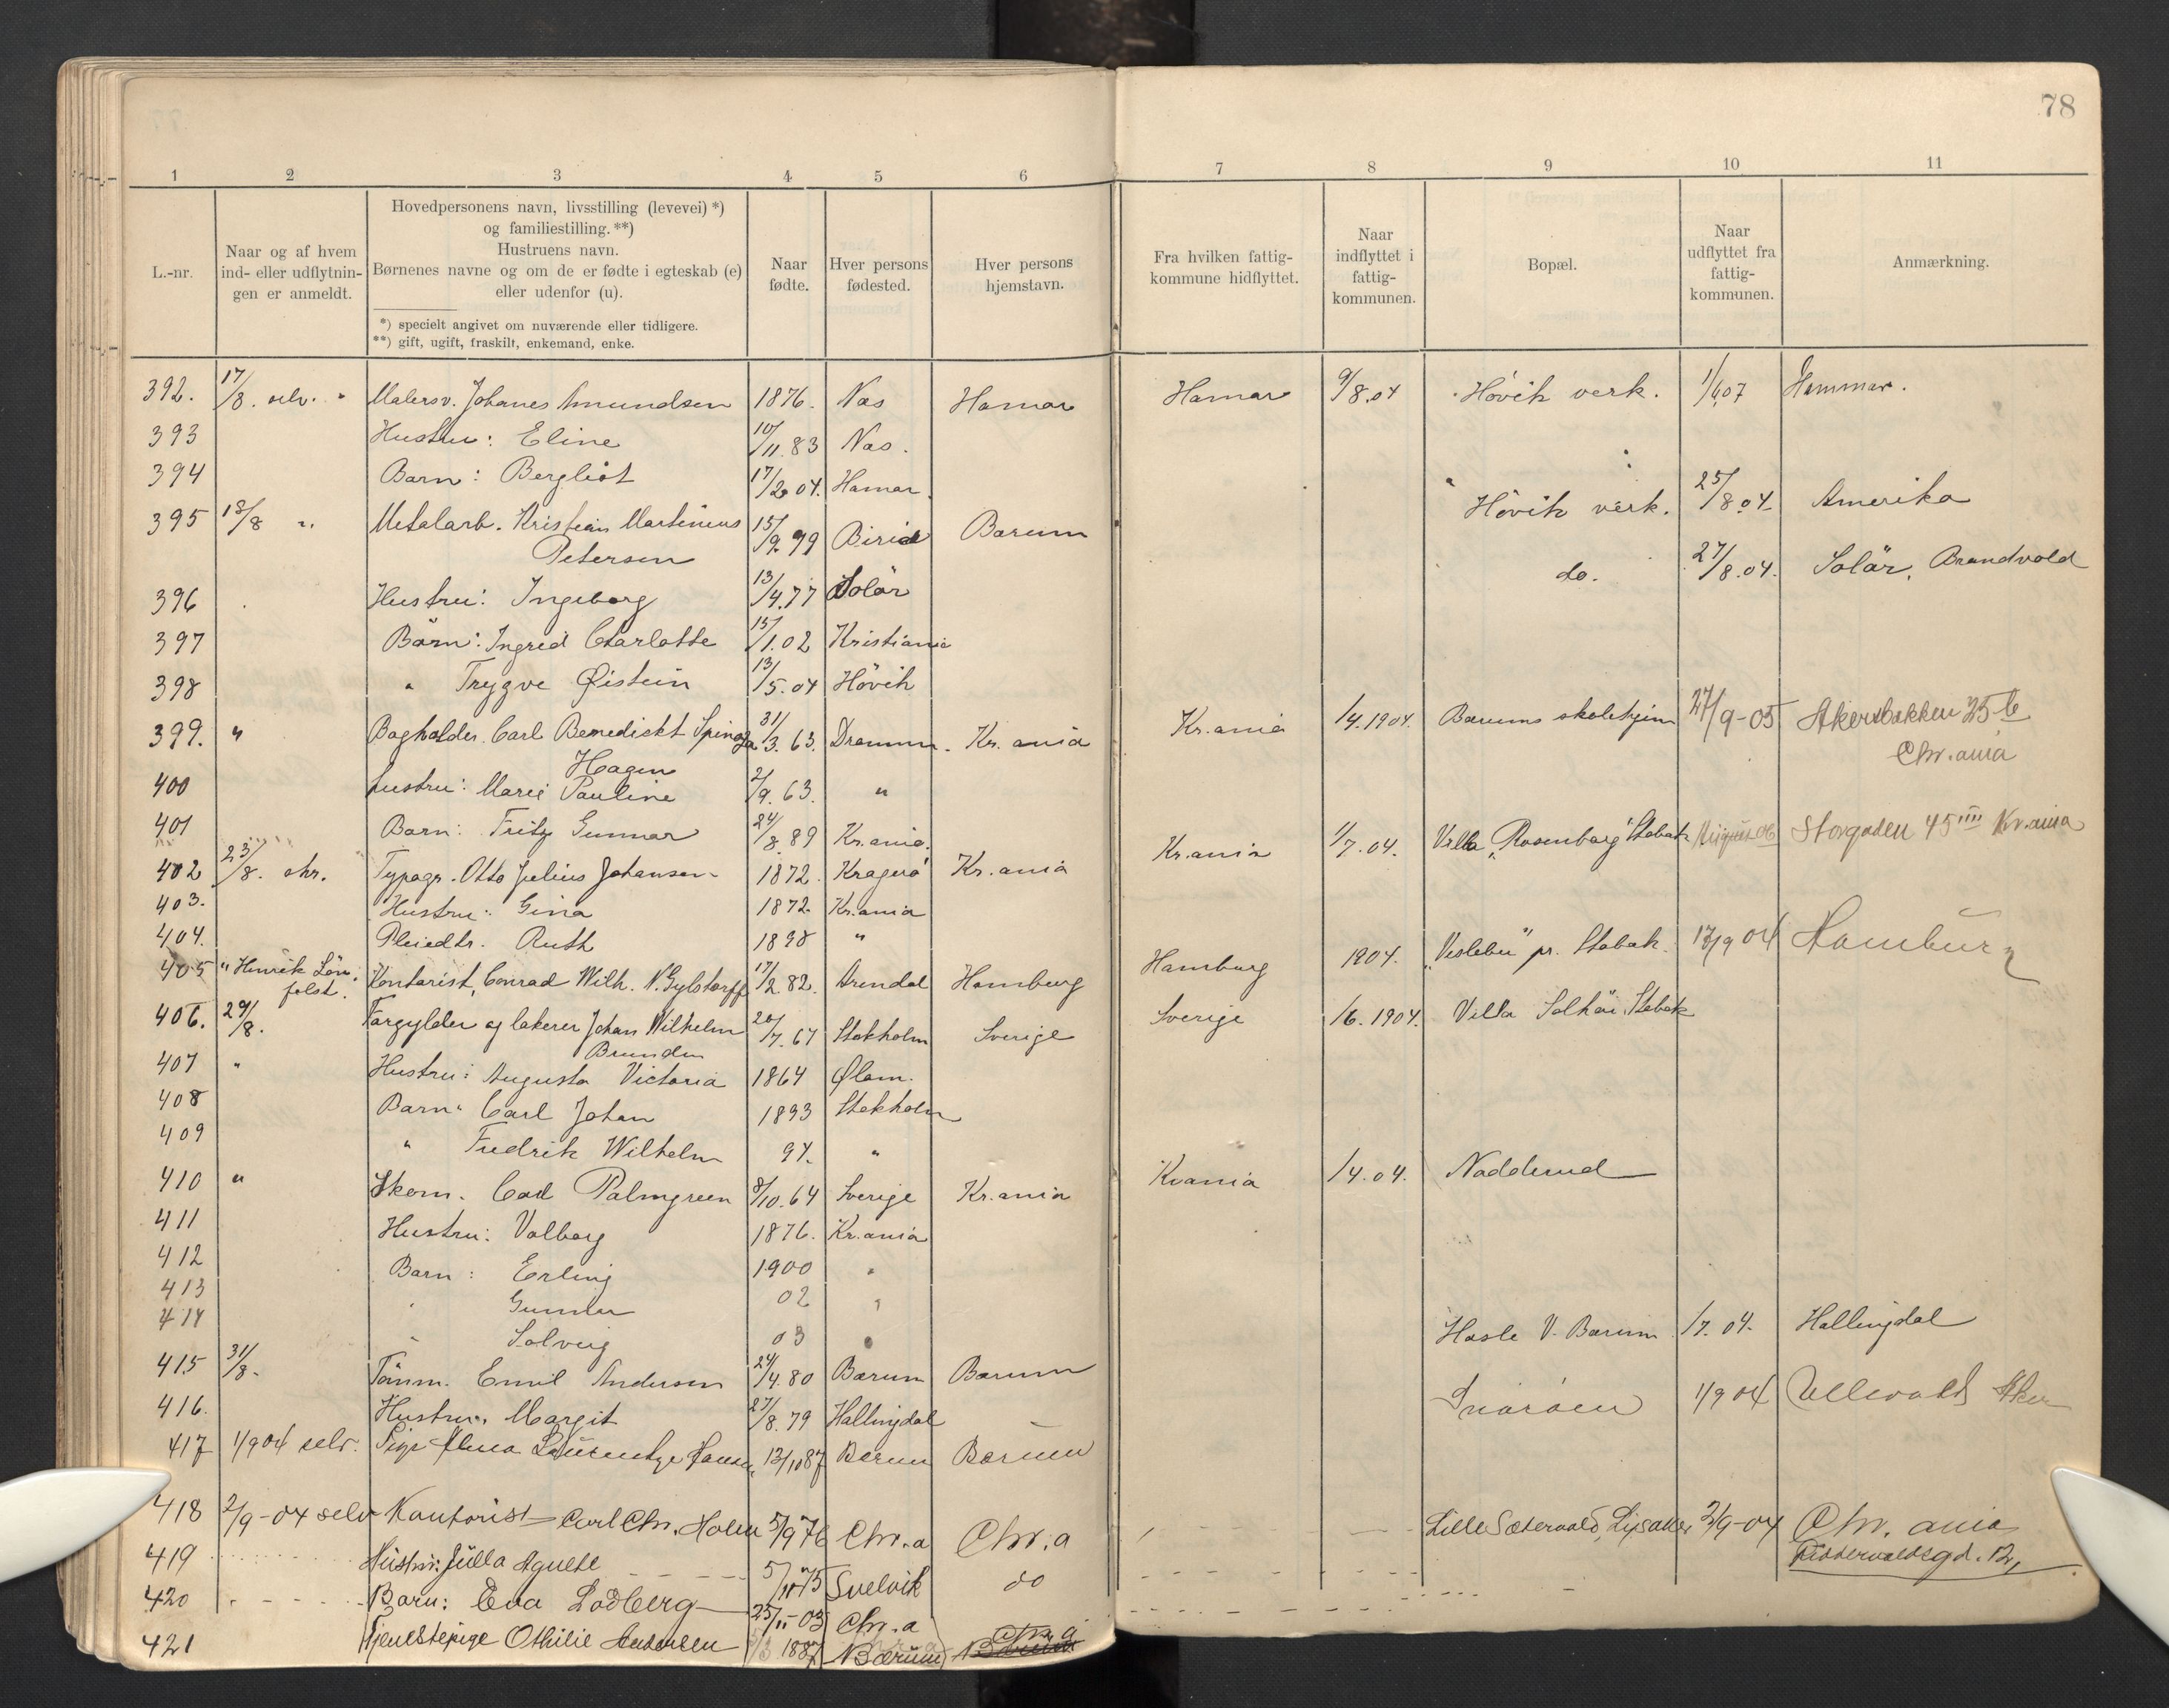 78
1 2 3 4 5 6 7 8 9 10 11
L.-nr.
Naar og af hvem
ind- eller udflytnin-
gen er anmeldt.
Hovedpersonens navn, livsstilling (levevei) *)
og familiestilling. **)
Hustruens navn.
Børnenes navne og om de er fødte i egteskab (e)
eller udenfor (u).
*) specielt angivet om nuværende eller tidligere.
**) gift, ugift, fraskilt, enkemand, enke.
Naar
fødte.
Hver persons
fødested.
Hver persons
hjemstavn.
Fra hvilken fattig-
kommune hidflyttet.
Naar
indflyttet i
fattig-
kommunen.
Bopæl.
Naar
udflyttet fra
fattig-
kommunen.
Anmærkning.
392. 17/8. selv. Malersv. Johanes Amundsen 1876. Nas Hamar Hamar 9/8.04 Hövik verk. Hammar.
393 Hustru: Eline 10/11.83 Nas.
394 Barn: Bergliot 17/2 04. Hamar.
395 18/8 " Metalarb. Kristian Martinius 15/9.79 Birid Barum Hövik verk. 25/8.04 Amerika
Petersen
396 Hustru: Ingeborg 13/4.77 Solör do. 27/8.04. Solär, Brandvold
397 Börn: Ingrid Charlotte 15/1.02 Kristiania
398 " Trygve Øistein 13/5.04 Hövik
399. " Bogholder. Carl Benedickt Spinoza 31/3.63. Dramm. Kr.ania Kr.ania 1/4.1904. Barums skolehjem 27/9-05 Akersbakken 25 b
Hagen Chr.ania
400 hustru: Marie Pauline 2/9.63. "
401 Barn: Fritz Gunnar 24/8.89 Kr.ania.
402 23/8. chr. Typogr. Otto Julius Johansen 1872. Kragerö Kr.ania Kr.ania 1/7.04. Villa "Rosenborg" Stabak August 06 Storgaden 45 IIII Kr.ania
403. Hustru: Gina 1872 Kr.ania
404. Pleiedtr. Ruth 1898 "
405 " Henrik Kontorist, Conrad Wilh. N. Gylstorff 17/2.82. Arendal Hamburg Hamburg 1904. "Veslebu" pr. Stabak. 13/9 04 Hamburg
406. 29/8. Forgylder og lakerer Johan Wilhelm 20/7.67 Stokholm Sverige Sverige 1/6.1904. Villa Solhöi, Stabak
Brunden
407 " Hustru: Augusta Victoria 1864 Ølam.
408 Barn: Carl Johan 1893 Stokholm
409 " Fredrik Wilhelm 94. "
410 " Skom. Carl Palmgreen 8/10.64 Sverige Kr.ania Kr.ania 1/4.04. Nadderud
411 Hustru: Valborg 1876. Kr.ania
412 Barn: Erling 1900 "
413 " Gunder 02 "
414 " Solveig 03
415 31/8. Tömm. Emil Andersen 24/4.80 Barum Barum Hasle V. Barum 1/7.04. Hallingdal
416. Hustru: Margit 27/8.79 Hallingdal
417 1/9 04 selv. Pige Alma Laurentze Hansen 13/10 87 Bærum Bærum Snarøen 1/9 04 Ullevold Aker
418 2/9-04 selv Kontorist Carl Chr. Holm 5/9 76 Chr.a Chr.a Lille Sætervold, Lysaker 2/9-04 Chr.ania
419 Hustru: Julla Agnete 5/10 75 Svelvik do
420 Barn: Eva Lodberg 25/11-03 Chr.a
421 Tjenestepige Othilie Andersen 1887 Bærum Chr.a